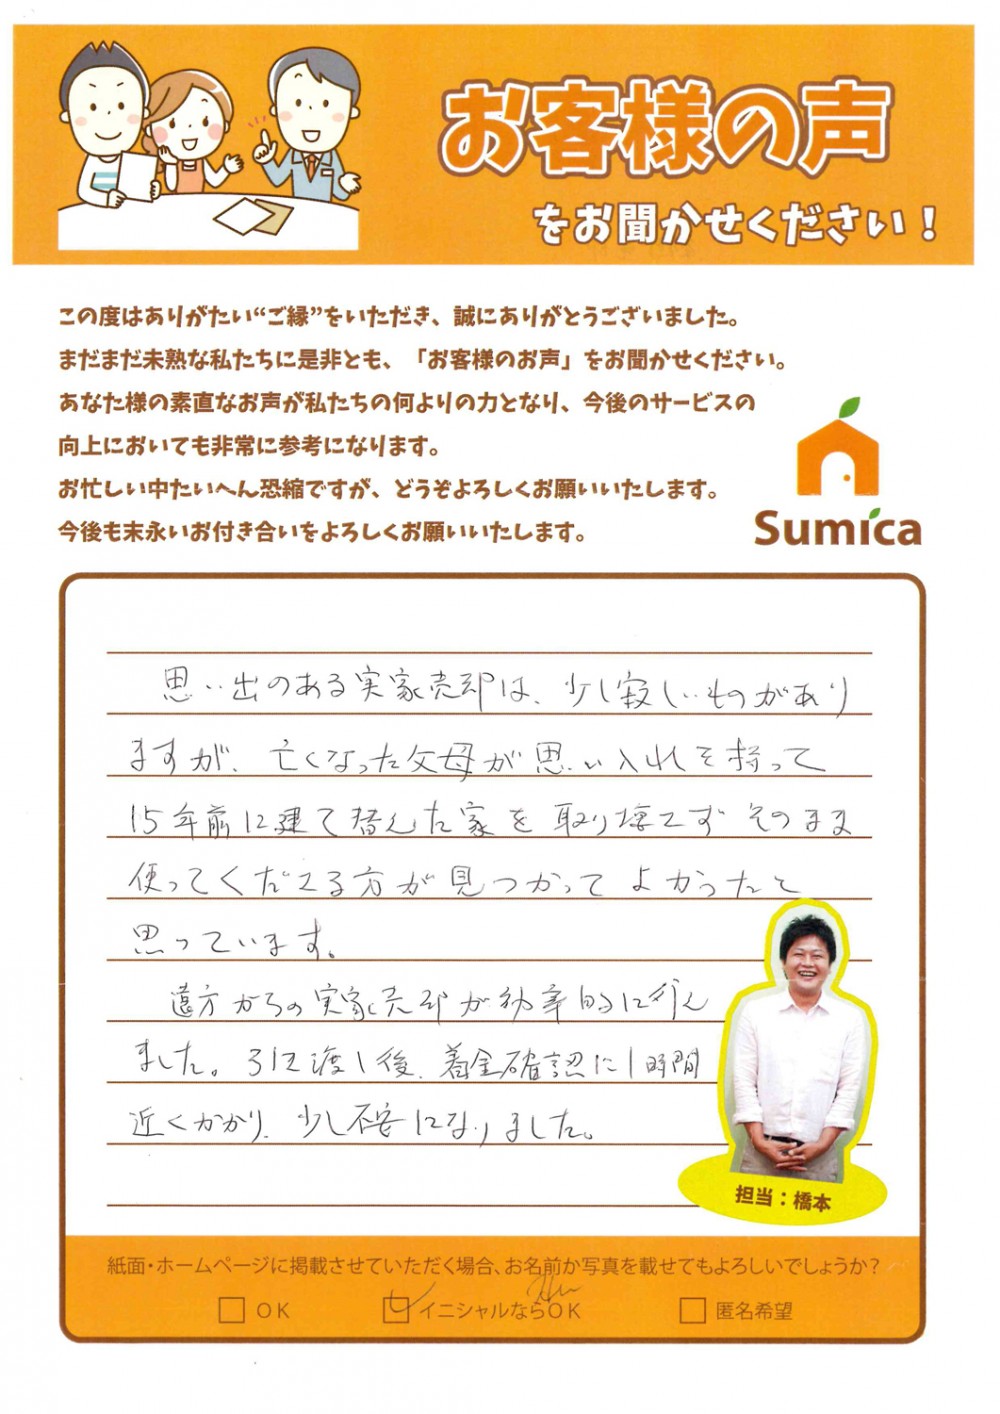 お客様の声
をお聞かせください！
この度はありがたい“ご縁”をいただき、誠にありがとうございました。
まだまだ未熟な私たちに是非とも、「お客様のお声」をお聞かせください。
あなた様の素直なお声が私たちの何よりの力となり、今後のサービスの
向上においても非常に参考になります。
お忙しい中たいへん恐縮ですが、どうぞよろしくお願いいたします。
今後も末永いお付き合いをよろしくお願いいたします。
Sumica
思い出のある実家売却は、少し寂しいものがあり
ますが、亡くなった父母が思い入れを持って
15年前に建て替えた家を取り壊さずそのまま
使ってくださる方が見つかってよかったと
思っています。
遠方からの実家売却が効率的に行え
ました。引き渡し後、着金確認に1時間
近くかかり、少し不安になりました。
担当：橋本
紙面・ホームページに掲載させていただく場合、お名前か写真を載せてもよろしいでしょうか？
OK イニシャルならOK 匿名希望